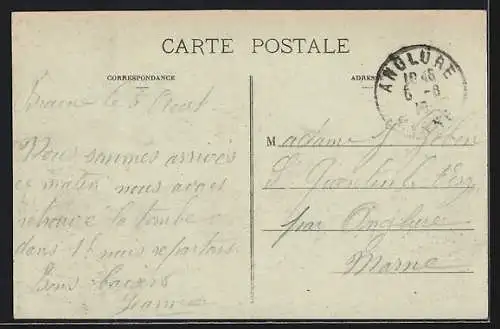 CARTE POSTALE
CORRESPONDANCE
ADRESSE
ANGLURE
MARNE
Braine le 5 Aout
Vous sommes arrivés
ce matin nous avons
retrouvé la tombe
dans 1h nous repartons
Bons baisers
Jeanne
Madame
St Quentin le Verg
par Anglure
Marne